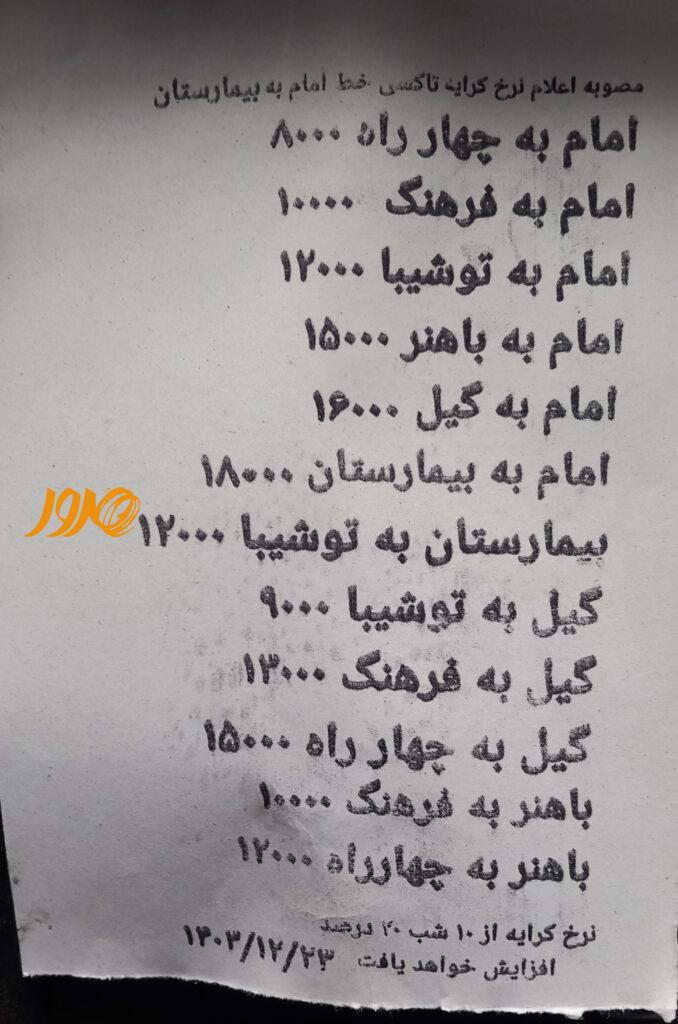 مصوبه اعلام نرخ کرایه تاکسی خط امام به بیمارستان
امام به چهار راه ۸۰۰۰
امام به فرهنگ ۱۰۰۰۰
امام به توشیبا ۱۲۰۰۰
امام به باهنر ۱۵۰۰۰
امام به گیل ۱۶۰۰۰
امام به بیمارستان ۱۸۰۰۰
مرور
بیمارستان به توشیبا ۱۲۰۰۰
گیل به توشیبا ۹۰۰۰
گیل به فرهنگ ۱۳۰۰۰
گیل به چهار راه ۱۵۰۰۰
باهنر به فرهنگ ۱۰۰۰۰
باهنر به چهارراه ۱۲۰۰۰
نرخ کرایه از ۱۰ شب ۲۰ درصد
افزایش خواهد یافت ۱۴۰۳/۱۲/۲۳